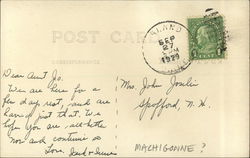 POST CARD
SEP
27
1929
1 CENT 1
Dear Aunt Jo.
We are here for a
few day rest, and are
having just that. We
hope you are all
now and continue so
Love,
Mrs. John
Spofford, N. H.
MACHIGONNE?